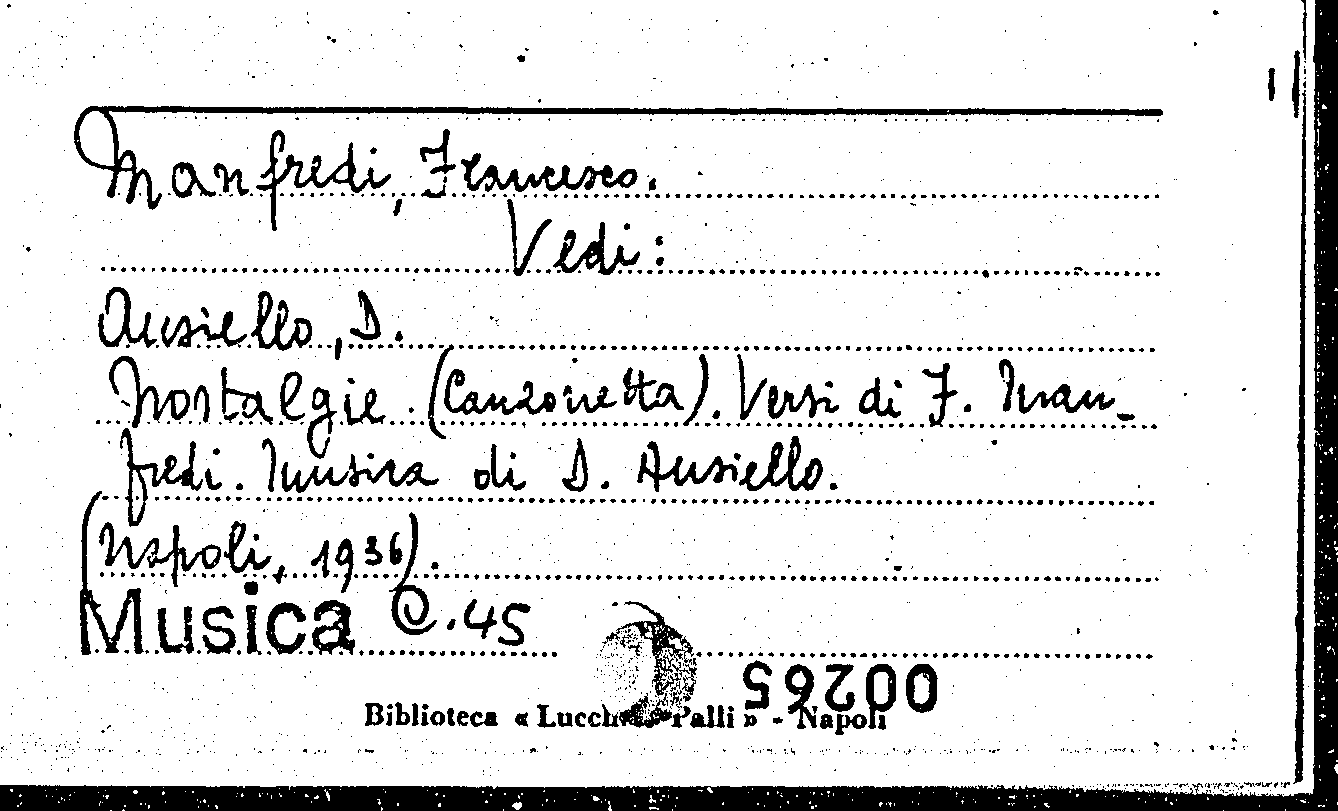 Manfredi, Francesco.
Vedi:
Ausiello, D.
Nostalgie. (Canzonetta). Versi di F. Man-
fredi. Musica di D. Ausiello.
(Napoli, 1936).
Musica C.45
00265
Biblioteca « Lucch Palli » - Napoli